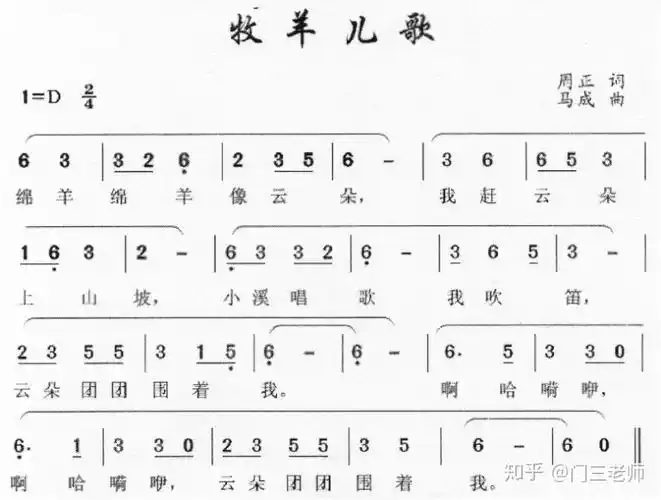 牧羊儿歌
周正 词
1=D 2/4
马成 曲
6 3 | 3 2 6 | 2 3 5 | 6 - | 3 6 | 6 5 3 |
绵羊 绵 羊 像云 朵, 我赶 云 朵
1 6 3 | 2 - | 6 3 3 2 | 6 - | 3 6 5 | 3 - |
上 山 坡, 小溪唱 歌 我吹 笛,
2 3 5 5 | 3 1 5 | 6 - | 6 - | 6. 5 | 3 3 0 |
云朵团团 围着 我。 啊 哈嗬咿,
6. 1 | 3 3 0 | 2 3 5 5 | 3 5 | 6 - | 6 0 ‖
啊 哈嗬咿, 云朵团团 围着 我。
知乎 @门三老师